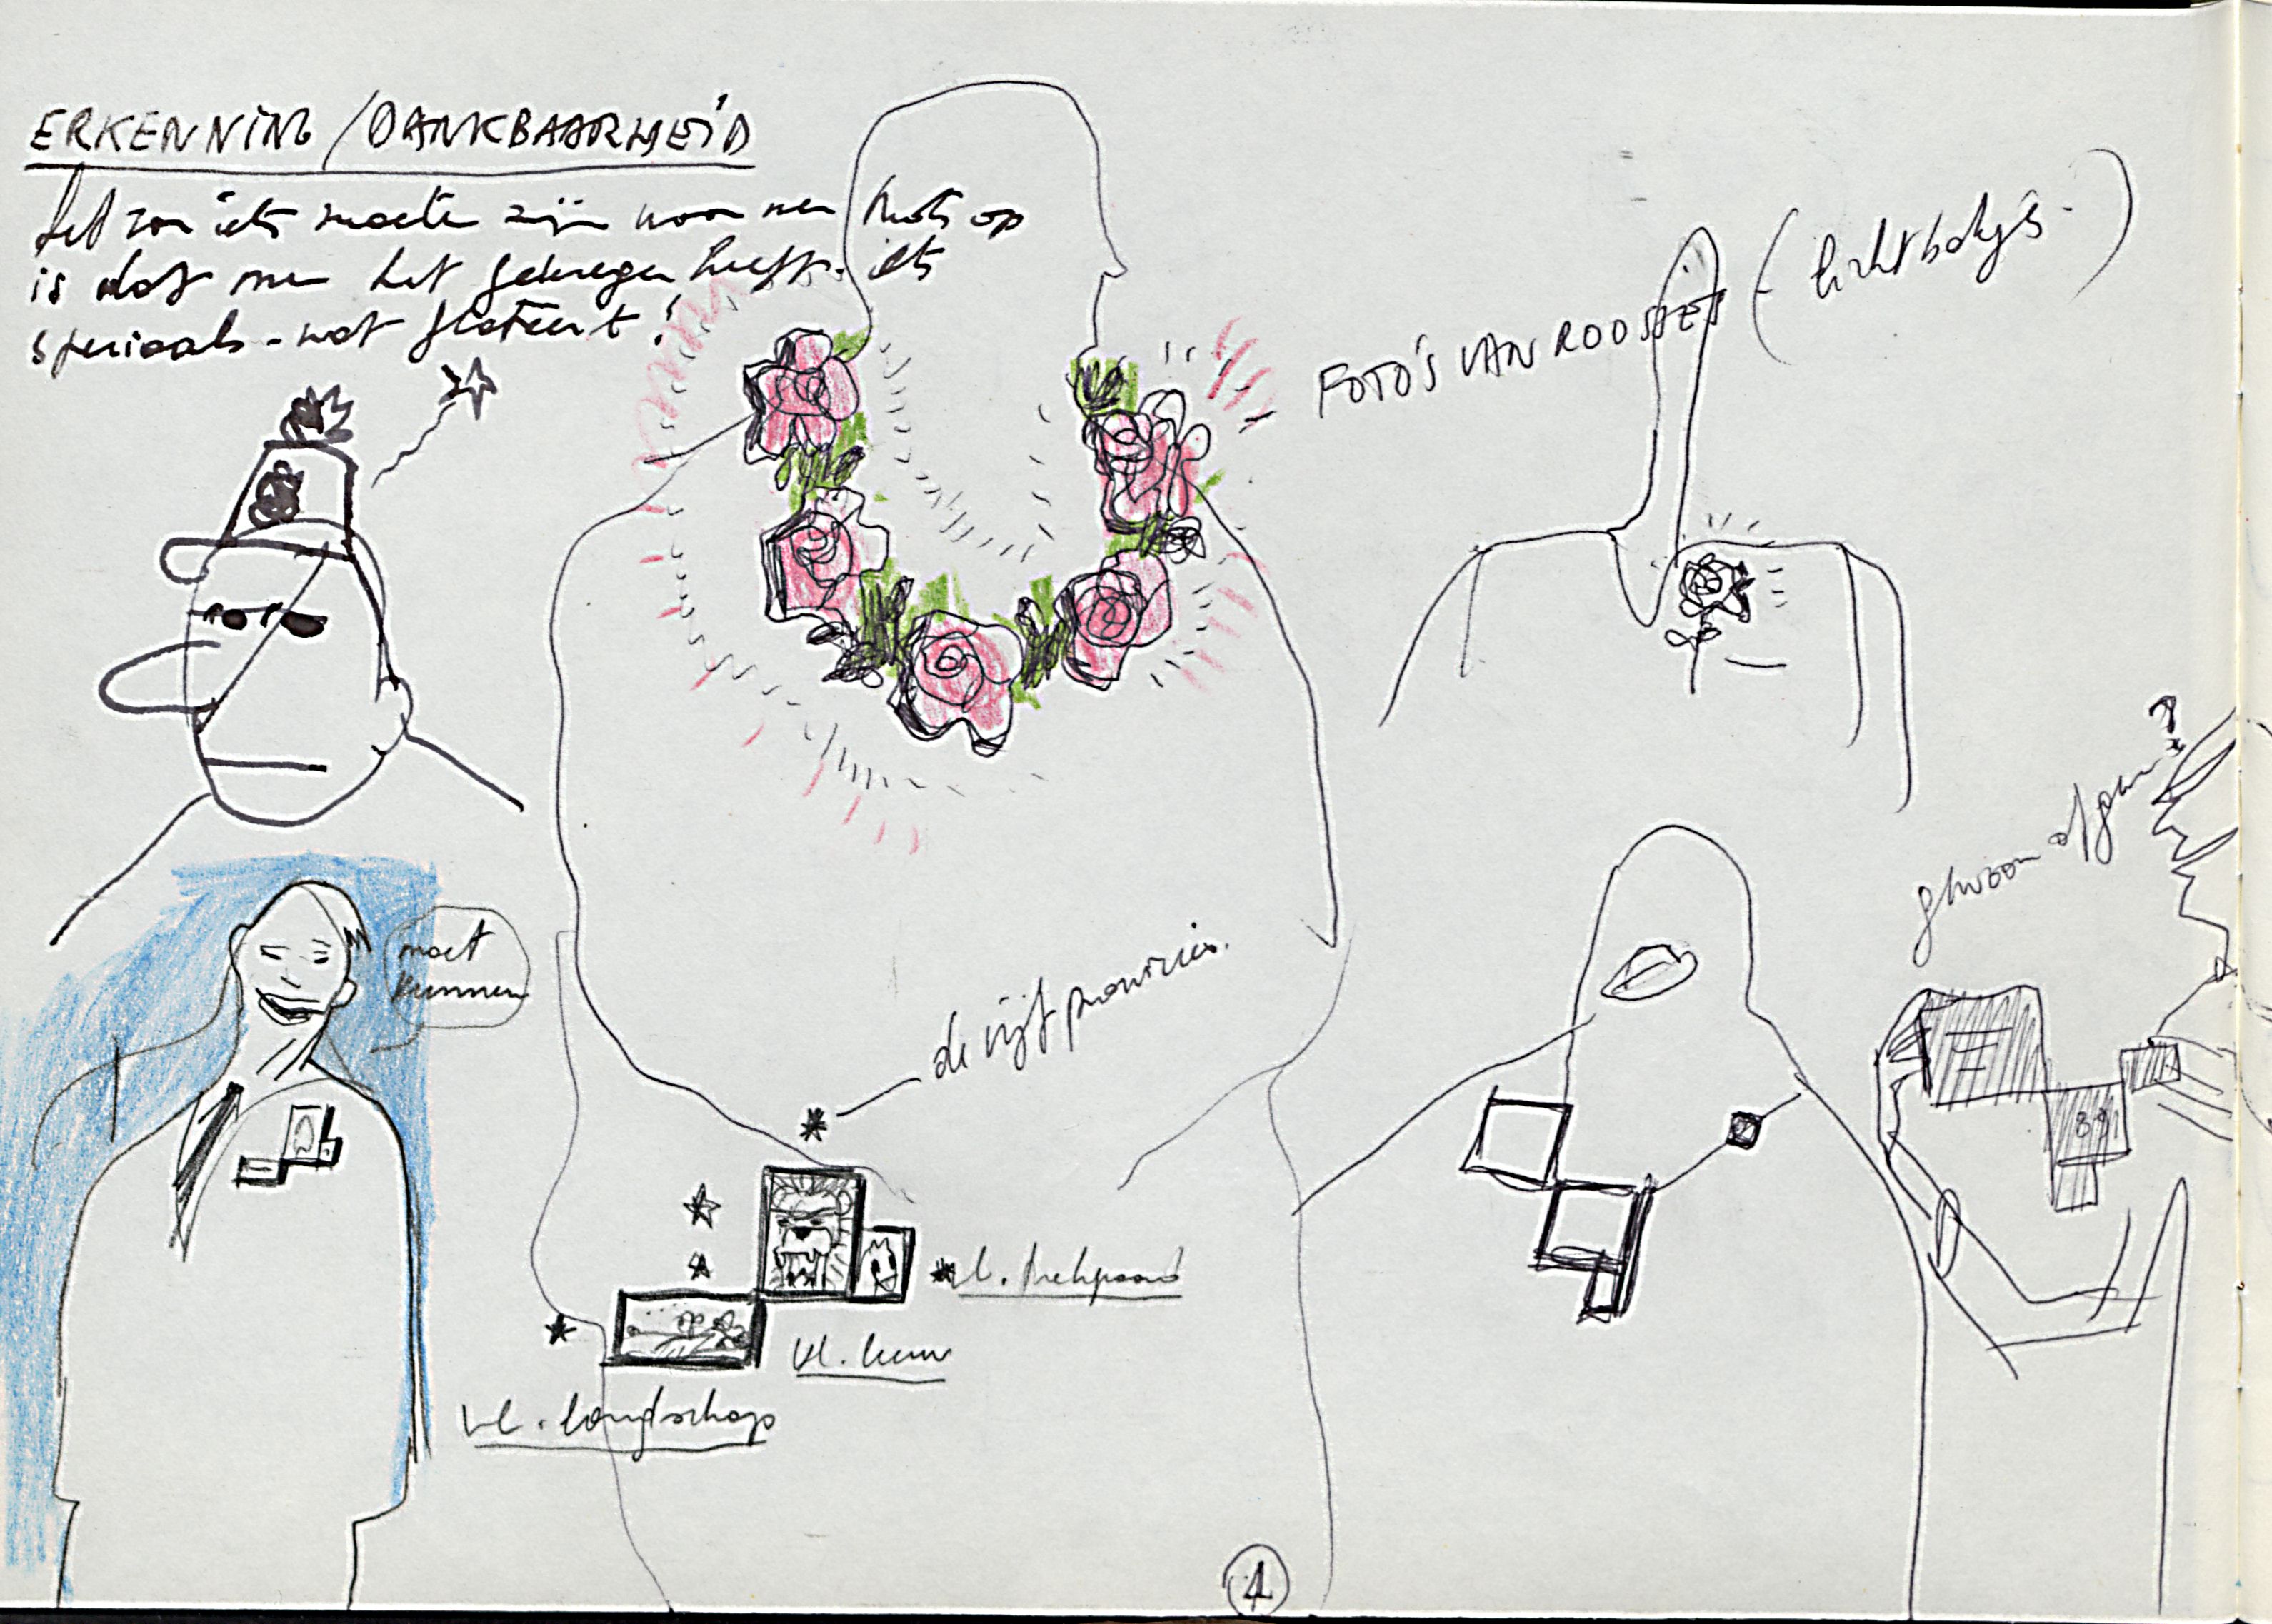 ERKENNING / DANKBAARHEID
het zou iets moeten zijn waar men trots op
is dat men het gekregen heeft. iets
speciaals - wat flateert!
FOTO'S VAN ROOSJES (lichtbakjes)
moet
kunnen
de vijf provincies.
vl. trekpaard
vl. leeuw
vl. landschap
gewoon af
?
89
1